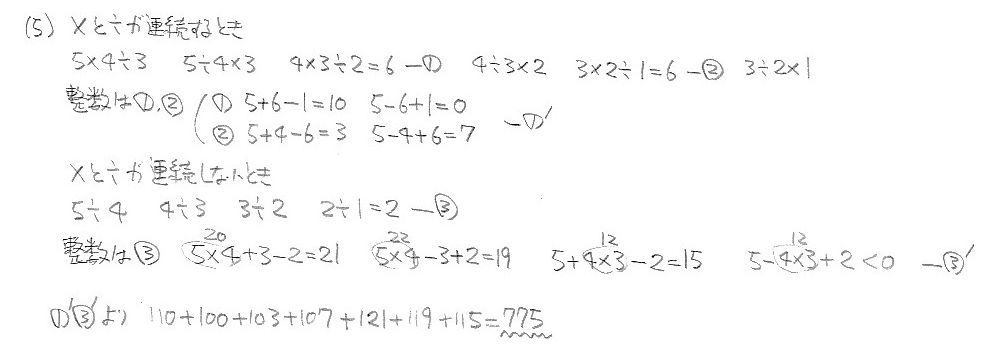 (5) ×と÷が連続するとき
5×4÷3 5÷4×3 4×3÷2=6 —① 4÷3×2 3×2÷1=6 —② 3÷2×1
整数は①,② ( ① 5+6-1=10 5-6+1=0
② 5+4-6=3 5-4+6=7 —①'
×と÷が連続しないとき
5÷4 4÷3 3÷2 2÷1=2 —③
20 22 12 12
整数は③ 5×4+3-2=21 5×4-3+2=19 5+4×3-2=15 5-4×3+2<0 —③'
①'③'より 110+100+103+107+121+119+115=775